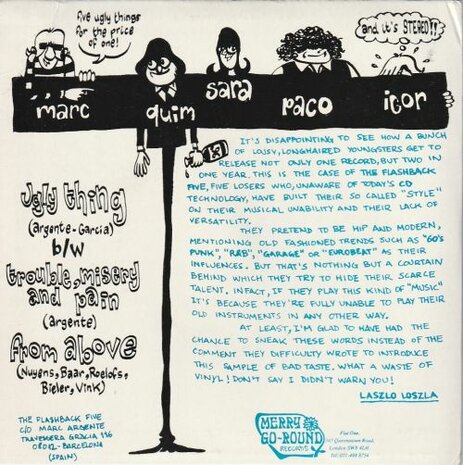 five ugly things
for the price
of one!
and it's STEREO!!
marc
quim
sara
paco
itor
IT'S DISAPPOINTING TO SEE HOW A BUNCH
OF LOUSY, LONGHAIRED YOUNGSTERS GET TO
RELEASE NOT ONLY ONE RECORD, BUT TWO IN
ONE YEAR. THIS IS THE CASE OF THE FLASHBACK
FIVE, FIVE LOSERS WHO, UNAWARE OF TODAY'S CD
TECHNOLOGY, HAVE BUILT THEIR SO CALLED "STYLE"
ON THEIR MUSICAL UNABILITY AND THEIR LACK OF
VERSATILITY.
THEY PRETEND TO BE HIP AND MODERN,
MENTIONING OLD FASHIONED TRENDS SUCH AS "60'S
PUNK", "R&B", "GARAGE" OR "EUROBEAT" AS THEIR
INFLUENCES. BUT THAT'S NOTHING BUT A COURTAIN
BEHIND WHICH THEY TRY TO HIDE THEIR SCARCE
TALENT. INFACT, IF THEY PLAY THIS KIND OF "MUSIC"
IT'S BECAUSE THEY'RE FULLY UNABLE TO PLAY THEIR
OLD INSTRUMENTS IN ANY OTHER WAY.
AT LEAST, I'M GLAD TO HAVE HAD THE
CHANCE TO SNEAK THESE WORDS INSTEAD OF THE
COMMENT THEY DIFFICULTY WROTE TO INTRODUCE
THIS SAMPLE OF BAD TASTE. WHAT A WASTE OF
VINYL! DON'T SAY I DIDN'T WARN YOU!
LASZLO LOSZLA
ugly thing
(argente-Garcia)
b/w
trouble, misery
and pain
(argente)
from above
(Nuyens, Baar, Roelofs,
Bieler, Vink)
THE FLASHBACK FIVE
C/O MARC ARGENTE
TRAVESSERA GRACIA 116
08012-BARCELONA
(SPAIN)
MERRY
GO-ROUND
RECORDS
Flat One,
Queenstown Road,
London SW8
Tel: 071 498 8754